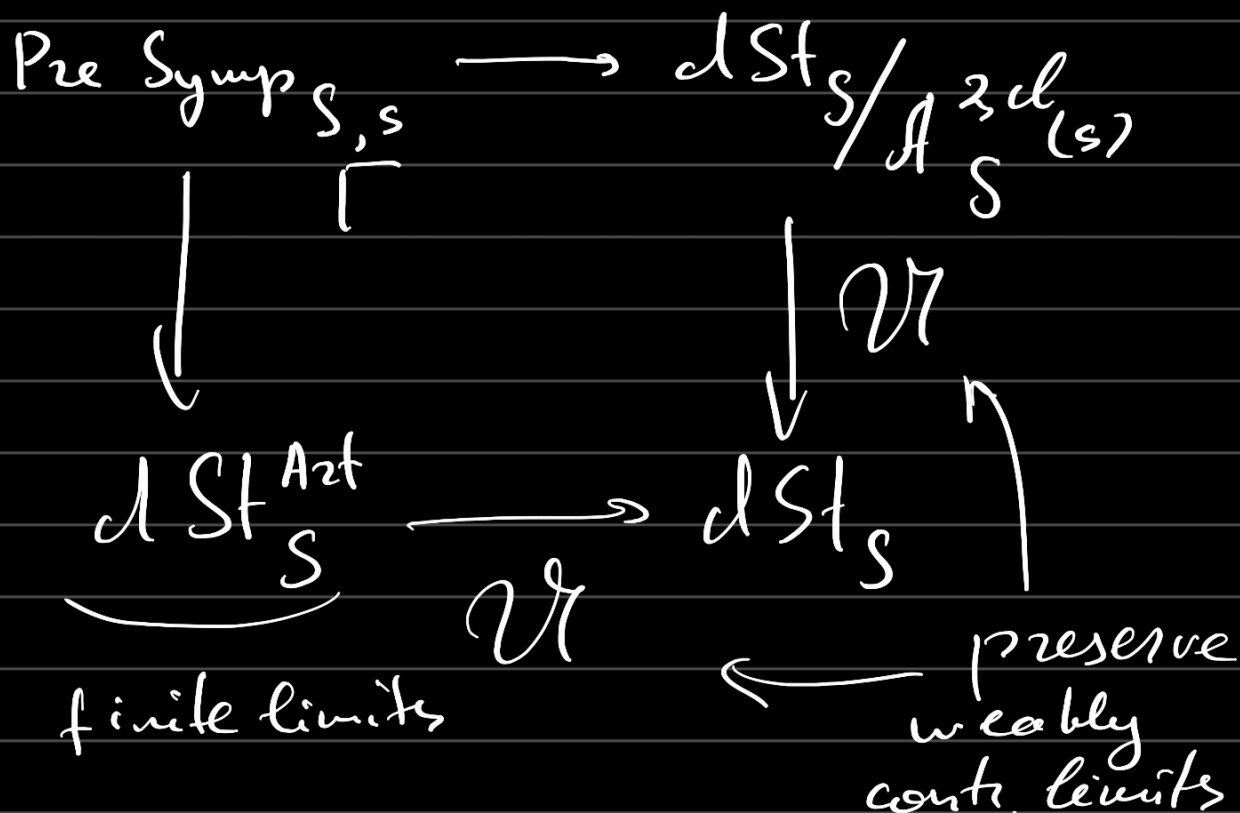 Pre Symp_{S,s} → dSt_S / A_S^{2,cl}(s)
U
dSt_S^{Art} → dSt_S
U
finite limits
preserve
weakly
contr. limits